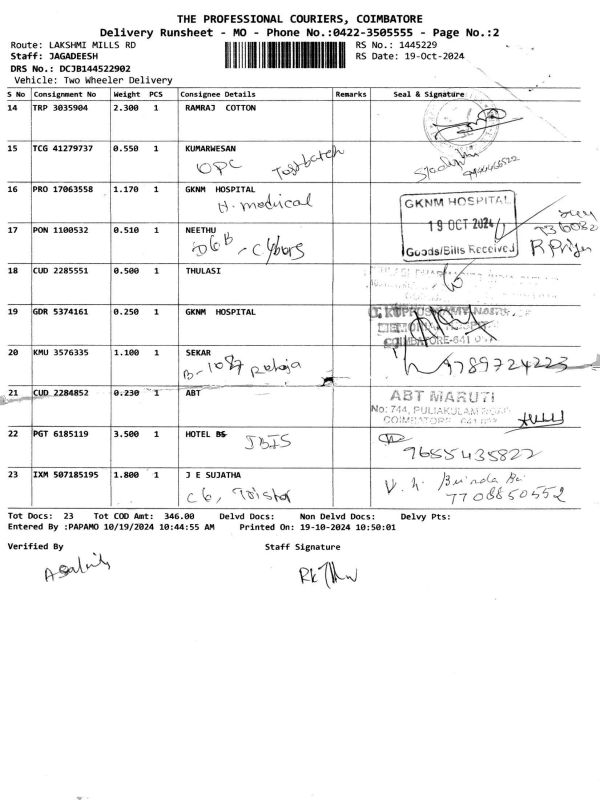 THE PROFESSIONAL COURIERS, COIMBATORE
Delivery Runsheet - MO - Phone No.:0422-3505555 - Page No.:2
Route: LAKSHMI MILLS RD RS No.: 1445229
Staff: JAGADEESH RS Date: 19-Oct-2024
DRS No.: DCJB144522902
Vehicle: Two Wheeler Delivery
S No Consignment No Weight PCS Consignee Details Remarks Seal & Signature
14 TRP 3035904 2.300 1 RAMRAJ COTTON
15 TCG 41279737 0.550 1 KUMARWESAN
OPC
16 PRO 17063558 1.170 1 GKNM HOSPITAL
H. medical
GKNM HOSPITAL
19 OCT 2024
Goods/Bills Received
17 PON 1100532 0.510 1 NEETHU
R Priya
18 CUD 2285551 0.500 1 THULASI
19 GDR 5374161 0.250 1 GKNM HOSPITAL
COIMBATORE-641 037
20 KMU 3576335 1.100 1 SEKAR
B-1087 Raheja
9789724223
21 CUD 2284852 0.230 1 ABT
ABT MARUTI
No: 744, PULIAKULAM ROAD
COIMBATORE
22 PGT 6185119 3.500 1 HOTEL
IBIS
9655435822
23 IXM 507185195 1.800 1 J E SUJATHA
C6, Tristar
7708850552
Tot Docs: 23 Tot COD Amt: 346.00 Delvd Docs: Non Delvd Docs: Delvy Pts:
Entered By :PAPAMO 10/19/2024 10:44:55 AM Printed On: 19-10-2024 10:50:01
Verified By Staff Signature